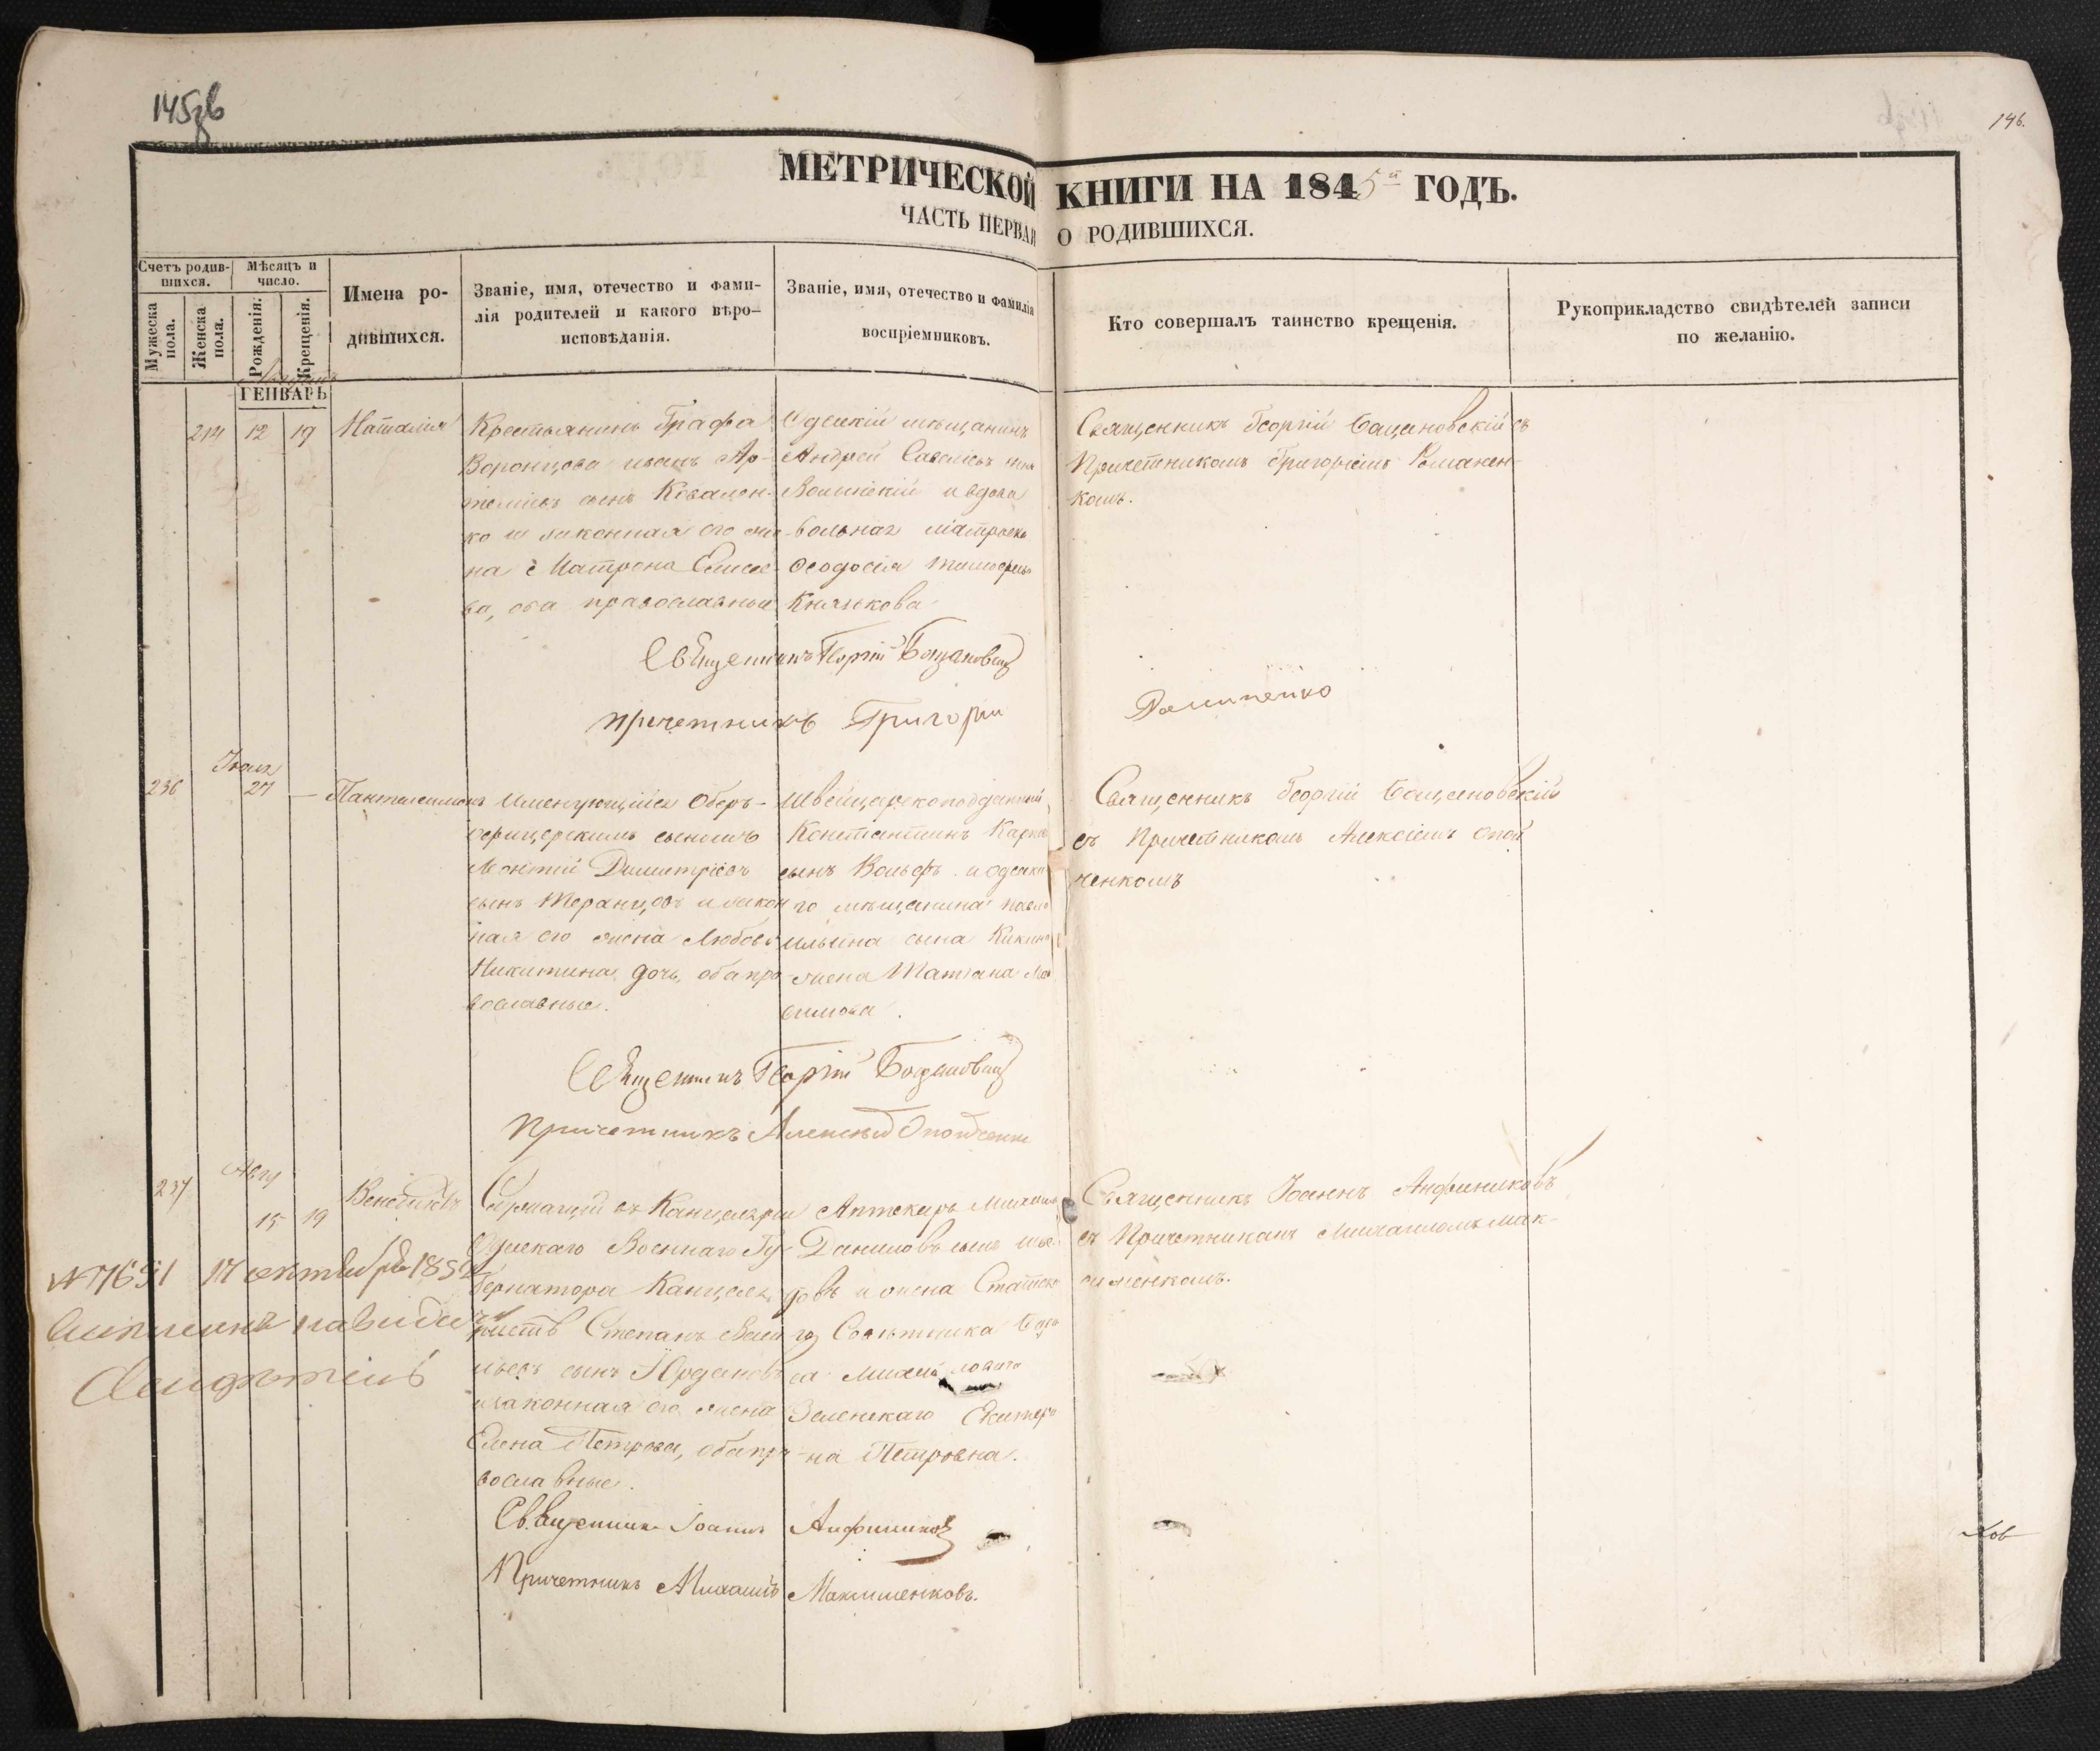 145 об
146.
МЕТРИЧЕСКОЙ КНИГИ НА 1845й ГОДЪ.
ЧАСТЬ ПЕРВАЯ О РОДИВШИХСЯ.
Счетъ родившихся.
Мужеска пола.
Женска пола.
Мѣсяцъ и число.
Рожденія.
Крещенія.
Имена родившихся.
Званіе, имя, отечество и фами-
лія родителей и какого вѣро-
исповѣданія.
Званіе, имя, отечество и фамилія
воспріемниковъ.
Кто совершалъ таинство крещенія.
Рукоприкладство свидѣтелей записи
по желанію.
ГЕНВАРЬ
214 12 19 Наталія
Крестьянинъ Графа
Воронцова Иванъ Ар-
темьевъ сынъ Ковален-
ко и законная его же-
на Матрона Елисее-
ва, оба православные
Одесскій мѣщанинъ
Андрей Савельевъ
и вдова
вольнаго матроса
Ѳеодосія Тимофеева
Князькова
Священникъ Георгій Бащановскій съ
Причетникомъ Григоріемъ Романен-
комъ.
Священникъ Георгій Бащановскій
Причетникъ Григорій Романенко
236 Іюля 27 — Пантелеимонъ
Именующійся Оберъ-
офицерскимъ сыномъ
Леонтій Димитріевъ
сынъ и закон-
ная его жена Любовь
Никитина дочь, оба пра-
вославные.
Швейцарскоподданный
Константинъ Карловъ
сынъ Вольфъ и одесска-
го мѣщанина Павла
Ильина сына Кикина
жена Татіана Мак-
симова.
Священникъ Георгій Бащановскій
съ Причетникомъ Алексіемъ Опой-
ченкомъ
Священникъ Георгій Бащановскій
Причетникъ Алексѣй Опойченко
237 Авгу 15 19 Венедиктъ
Служащій въ Канцеляріи
Одесскаго Военнаго Гу-
бернатора Канцеля-
ристъ Степанъ Васи-
льевъ сынъ Юрдановъ
и законная его жена
Елена Петрова, оба пра-
вославные.
Аптекарь Михаилъ
Даниловъ сынъ
и жена Статска-
го Совѣтника
Михайловича
Зеленскаго Екатери-
на Петровна.
Священникъ Іоаннъ Анфиниковъ
съ Причетникомъ Михаиломъ Мак-
сименкомъ.
Священникъ Іоаннъ Анфиниковъ
Причетникъ Михаилъ Максименковъ.
№ 7651 17 октября 185